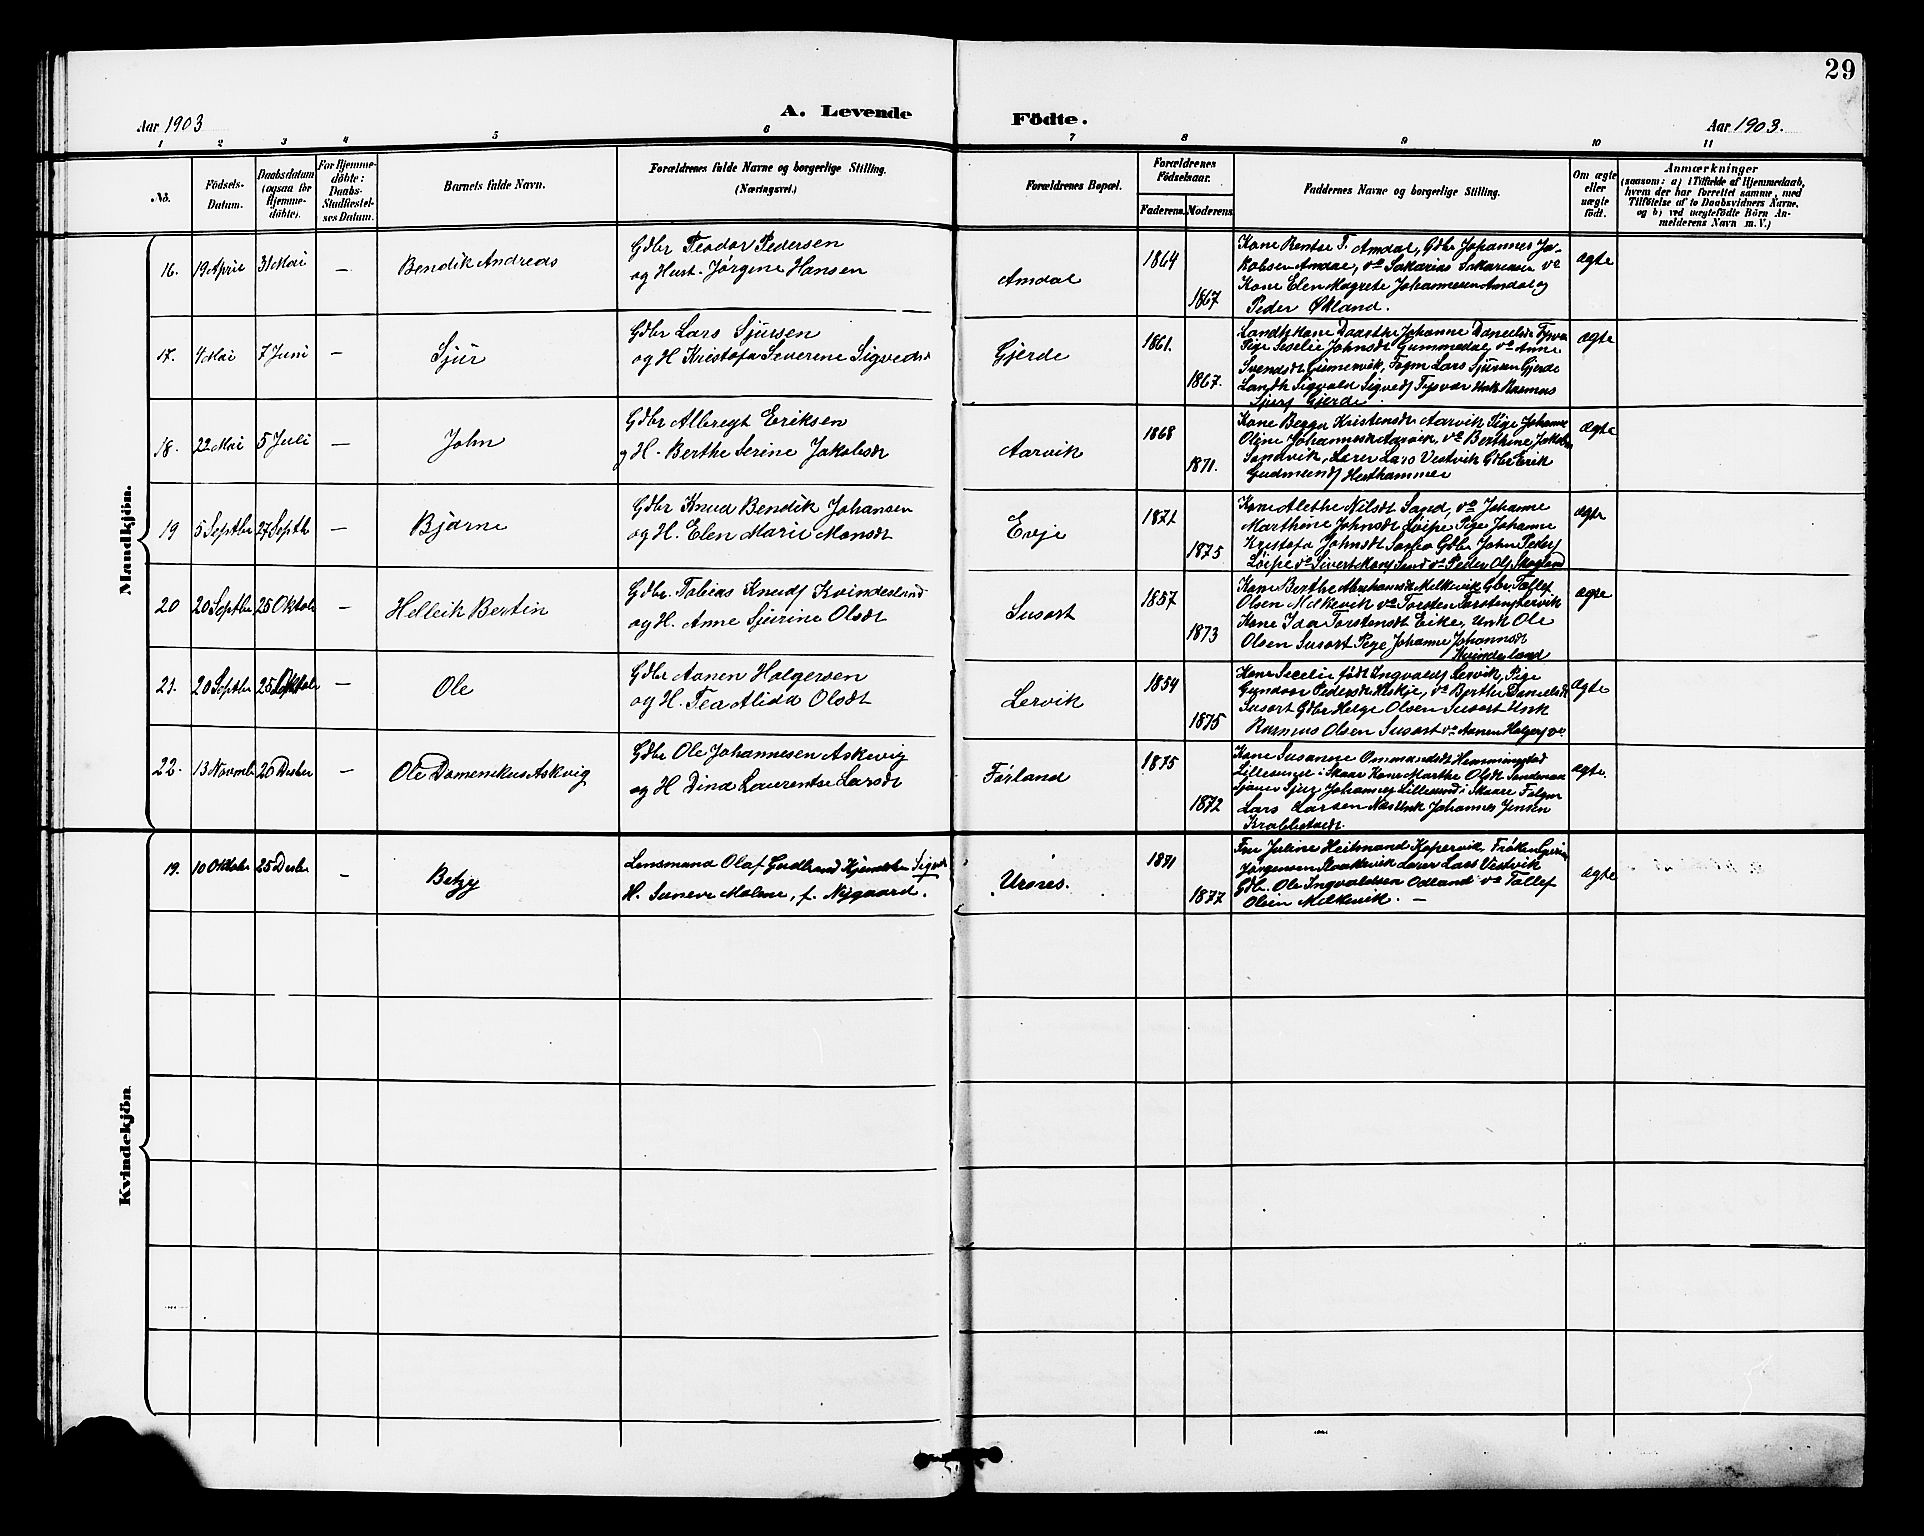 29
A. Levende Födte.
Aar 1903
Aar 1903.
1 2 3 4 5 6 7 8 9 10 11
No.
Födsels-Datum.
Daabsdatum (ogsaa for Hjemmedöbte).
For Hjemmedöbte: Daabs-Stadfæstelses Datum.
Barnets fulde Navn.
Forældrenes fulde Navne og borgerlige Stilling.
(Næringsvei.)
Forældrenes Bopæl.
Forældrenes Födselsaar.
Faderens. Moderens.
Faddernes Navne og borgerlige Stilling.
Om ægte eller uægte født.
Anmærkninger
(saasom: a) i Tilfælde af Hjemmedaab,
hvem der har forrettet samme, med
Tilföielse af to Daabsvidners Navne,
og b) ved uægtefödte Börn Anmelderens Navn m. V.)
Mandkjön.
16. 19 April 31 Mai — Bendik Andreas
Gdbr Teodor Pedersen
og Hust. Jørgine Hansen
Amdal 1864 1867
Kone Bentse T. Amdal, Gdbr Johannes Ja-
kobsen Amdal, do Sakarias Sakariasen do
Kone Elen Magrete Johannesen Amdal og
Peder Økland.
ægte
17. 4 Mai 7 Juni — Sjur
Gdbr Lars Sjursen
og H. Kristofa Severine Sigvedsd
Gjerde 1861. 1867.
Landh Kone Daarthe Johanne Danielsd Tysvær
Pige Seselie Johnsdt Gummedal, do Anne
Svendsdt Gismervik, Fogm Lars Sjursen Gjerde
Landh Sigvald Sigvedsen Tysvær Unk Rasmus
Sjurs Gjerde.
ægte
18. 22 Mai 5 Juli — John
Gdbr Albregt Eriksen
og H. Berthe Serine Jakobsdt
Aarvik 1868 1871.
Kone Begga Kristensdt Aarvik Pige Johanne
Oline Johannesdt Aarvik, do Berthine Jakobsen
Sandvik, Lærer Lars Vestvik Gdbr Erik
Gudmunds Hesthammer
ægte
19 5 Septbr 27 Septb — Bjarne
Gdbr Knud Bendik Johansen
og H. Elen Marie Monsdt
Evje 1871 1875
Kone Alethe Nilsdt Sand, do Johanne
Marthine Johnsdt Løipe Pige Johanne
Kristofa Johnsdt Gdbr John Peders
Løipe do Sivert Mons Sand do Peder Ols Skogland
ægte
20 20 Septbr 25 Oktob — Helleik Bertin
Gdbr. Tobias Knuds Kvindesland
og H. Anne Sjurine Olsdt
Susort 1857 1873
Kone Berthe Abrahamsdt Melkevik Gbr Tollef
Olsen Melkevik do Torsten Torstens Lervik
Kone Ida Torstensdt Eike, Unk Ole
Olsen Susort Pige Johanne Johannsdt
Kvindesland
ægte
21. 20 Septbr 25 Oktob — Ole
Gdbr Aanen Holgersen
og H. Tea Alida Olsdt
Lervik 1854 1875
Kone Secelie født Ingvalds Lervik, Pige
Gundaor Pedersdt, do Berthe Danielsdt
Susort Gdbr Helge Olsen Susort Unk
Rasmus Olsen Susort do Aanen Holgers do
ægte
22. 13 Novmb 20 Desbr — Ole Domenikus Askvig
Gdbr Ole Johannesen Askevig
og H Dina Laurentse Larsdt
Førland 1875 1872
Kone Susanne Ommundsdt Hemmingstad
Lillesund i Skaar Kone Marthe Olsdt
Sjur Johannes Lillesund i Skaare Fogm
Lars Larsen Johannes Jensen
Krabbetveit
ægte.
Kvindekjön
19. 10 Oktober 25 Desbr — Betzy
Lensmand Olaf
H. Suneve Malene, f. Nygaard.
Ursnes. 1871 1877
Fru Juline Heitmand Kopervik, Frøken
Jørgensen Lærer Lars Vestvik
Gdb. Ole Ingvaldsen Odland do Tollef
Olsen Melkevik. —
ægte